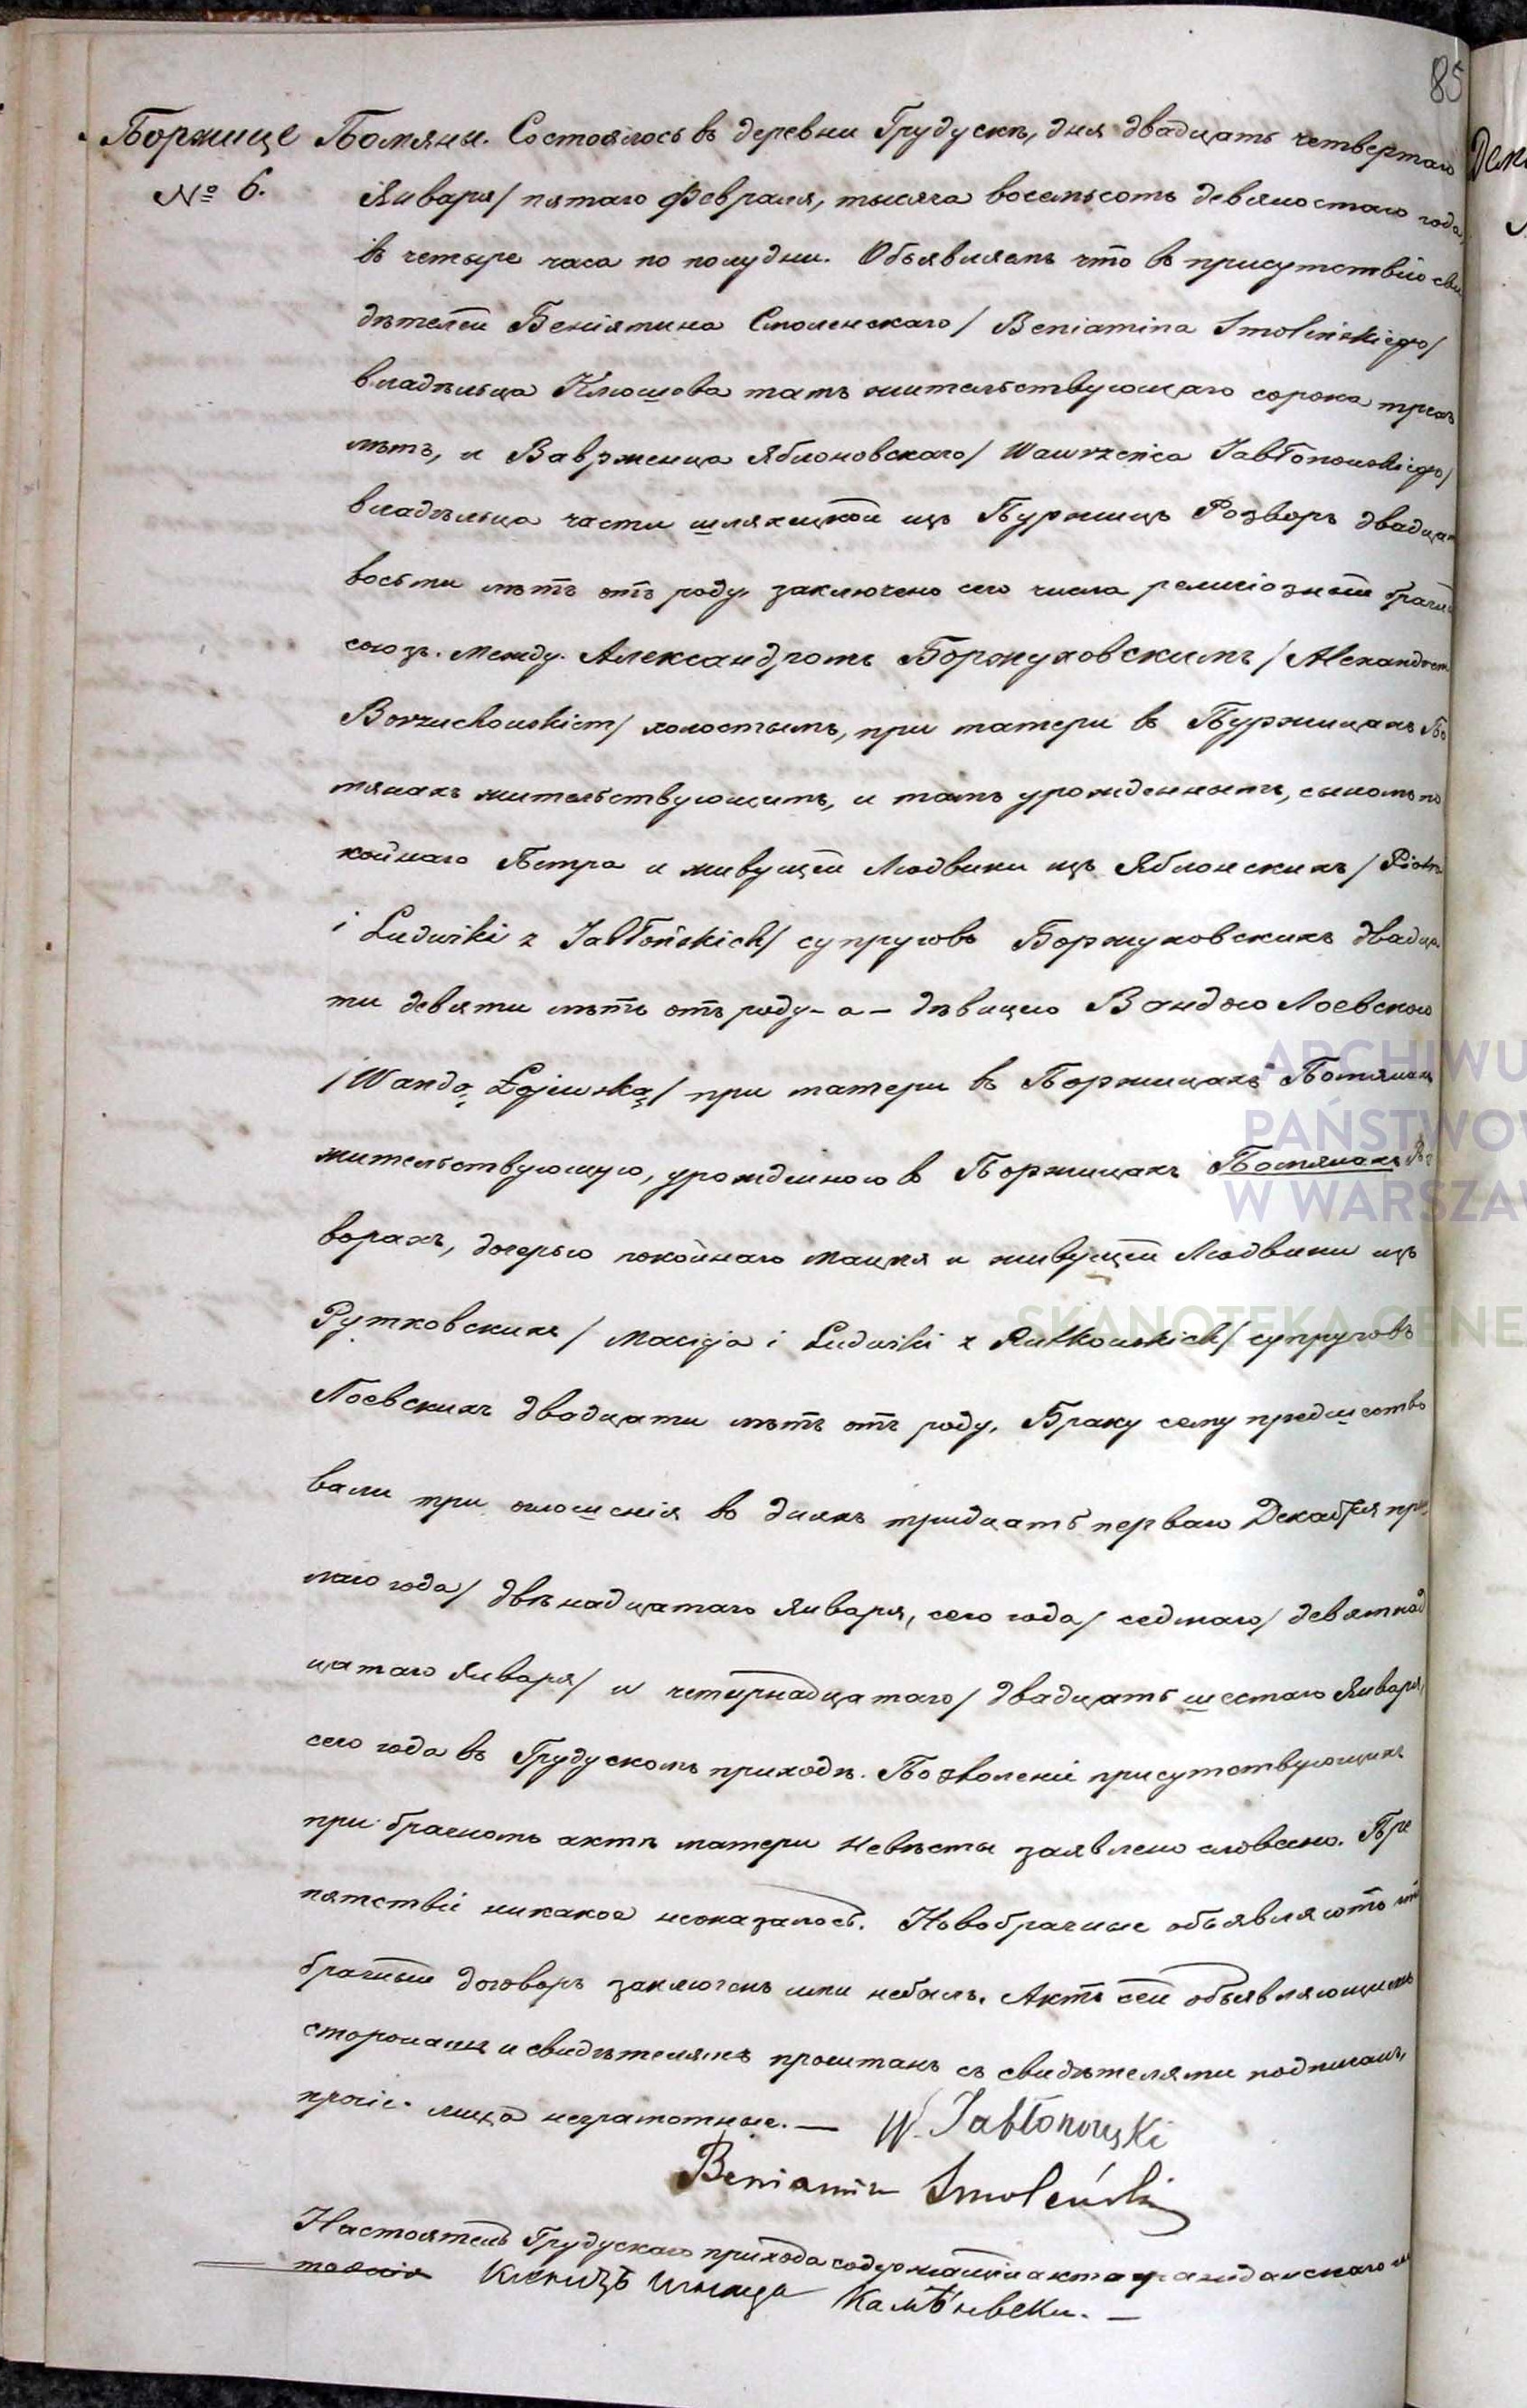 85
Боржице Помяны. Состоялось въ деревни Грудускѣ, дня двадцать четвертаго
№ 6. Января/ пятаго Февраля, тысяча восемьсотъ девяностаго года,
въ четыре часа по полудни. Объявляемъ что въ присутствіи сви
дѣтелей Беніямина Смоленскаго/ Beniamina Smolińskiego/
владѣльца Клюшова тамъ жительствующаго сорока трехъ
лѣтъ, и Вавржеица Яблоновскаго/ Wawrzeńca Jabłonowskiego/
владѣльца части шляхецкой изъ Буржицъ Розворъ двадцати
восьми лѣтъ отъ роду, заключено сего числа религіозный брачный
союзъ. Между. Александромъ Боржуховскимъ / Alexandrem
Borzuchowskiem/ холостымъ, при матери въ Буржицахъ По
мянахъ жительствующимъ, и тамъ урожденнымъ, сыномъ по
койнаго Петра и живущей Людвики изъ Яблонскихъ / Piotra
i Ludwiki z Jabłońskich/ супруговъ Боржуховскихъ двадца
ти девяти лѣтъ отъ роду - а - дѣвицею Вандою Лоевскою
/Wandą Łojewską/ при матери въ Боржицахъ Помянахъ
жительствующую, урожденною въ Боржицахъ Помянахъ Роз
ворахъ, дочерью покойнаго Мацея и живущей Людвики изъ
Рутковскихъ / Macieja i Ludwiki z Rutkowskich/ супруговъ
Лоевскихъ двадцати лѣтъ отъ роду, Браку сему предшество
вали три оглошенія въ дняхъ тридцать перваго Декабря прош
лаго года/ двѣнадцатаго Января, сего года/ седмаго/ девятнад
цатаго Января/ и четырнадцатаго/ двадцать шестаго Января,
сего года въ Грудускомъ приходѣ. Позволеніе присутствующихъ
при брачномъ актѣ матери невѣсты заявлено словесно. Пре
пятствіе никакое неоказалось. Новобрачные объявляютъ что
брачный договоръ заключенъ ими небылъ. Актъ сей объявляющимъ
сторонамъ и свидѣтелямъ прочитанъ съ свидѣтелями подписанъ,
прочіе лица неграмотные. — W. Jabłonowski
Beniamin Smoleński
Настоятель Грудускаго прихода содержащій акта гражданскаго со
тоянія Ксендзъ Игнаца